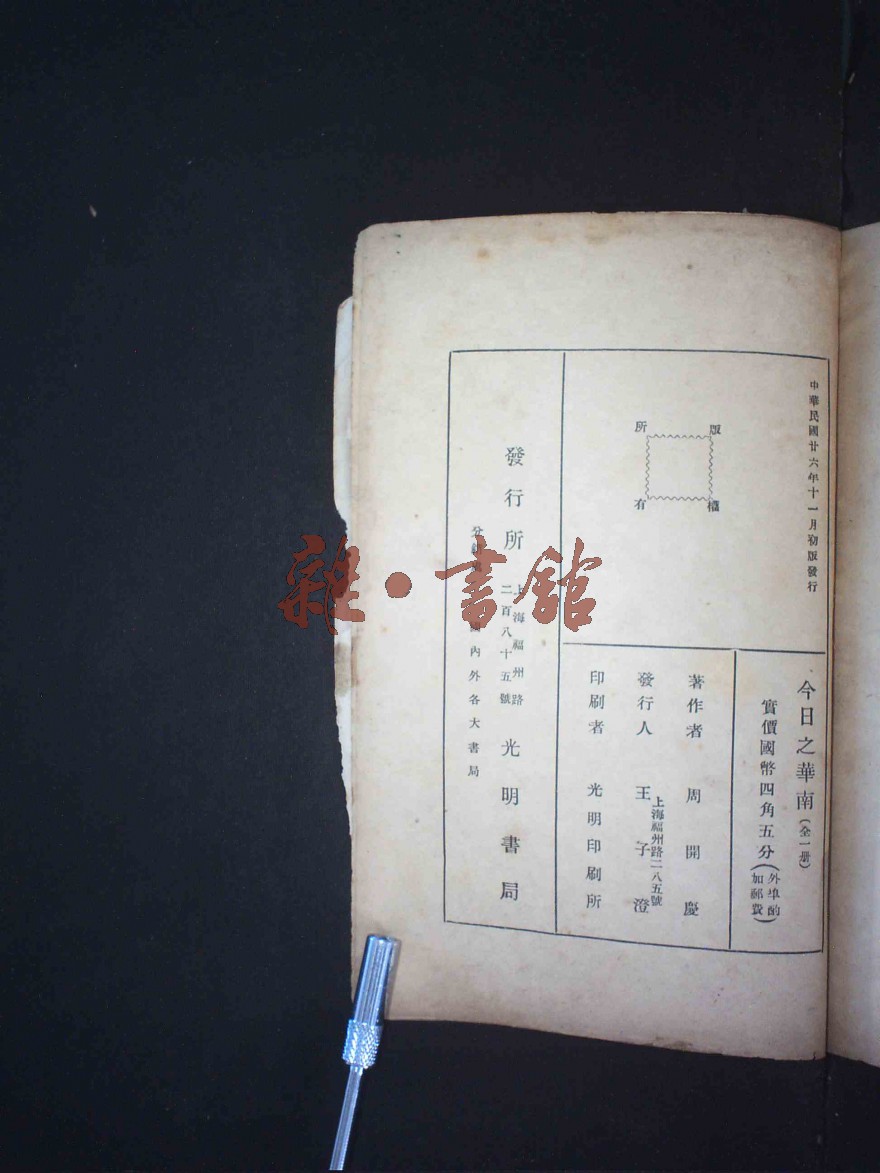 中華民國廿六年十一月初版發行
版權所有
今日之華南(全一册)
實價國幣四角五分(外埠酌加郵費)
著作者 周開慶
發行人 王子澄
上海福州路二八五號
印刷者 光明印刷所
發行所 上海福州路二百八十五號 光明書局
分 國內外各大書局
雜·書館